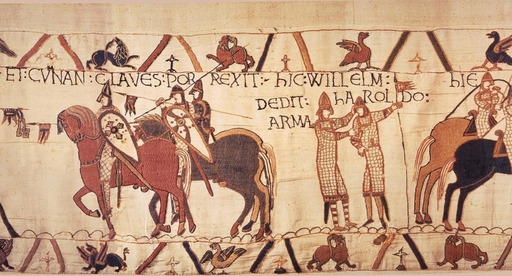 ET: CVNAN: CLAVES: POR REXIT:- hIC: WILLELM: hIE
DEDIT: hAROLDO:
ARMA